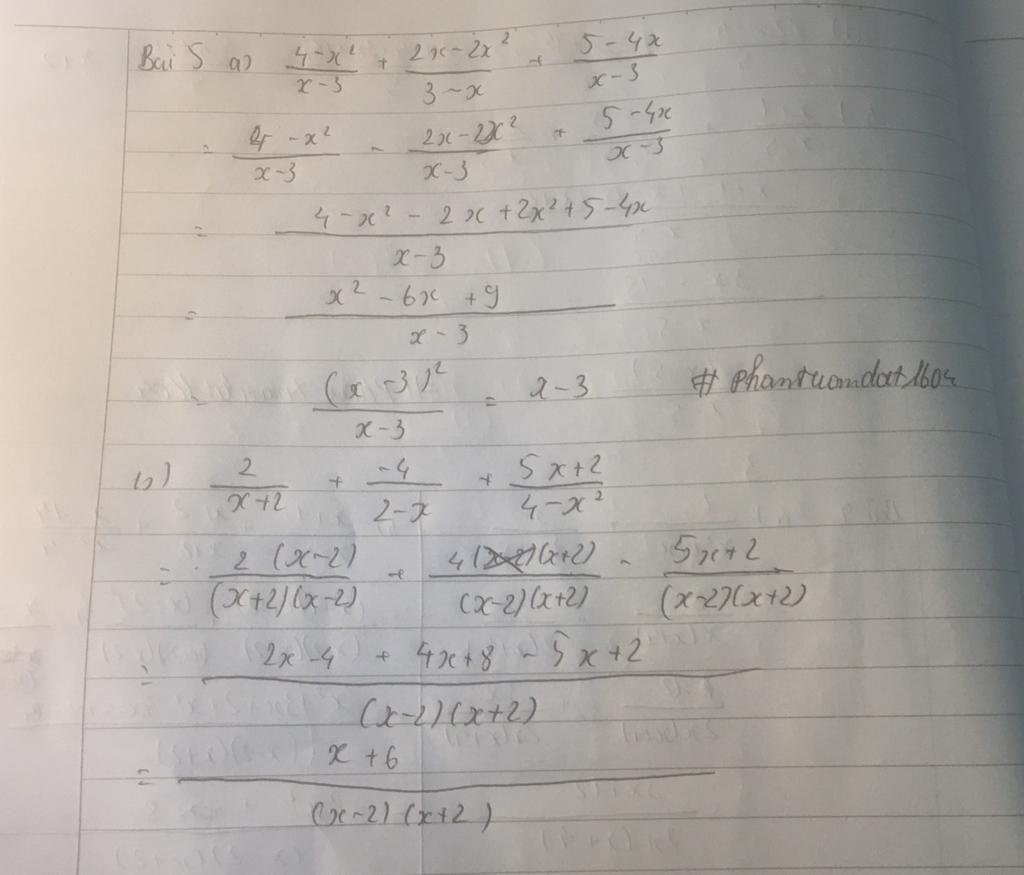 Bài 5 a) (4-x²)/(x-3) + (2x-2x²)/(3-x) + (5-4x)/(x-3)
= (4-x²)/(x-3) - (2x-2x²)/(x-3) + (5-4x)/(x-3)
= (4-x²-2x+2x²+5-4x)/(x-3)
= (x²-6x+9)/(x-3)
= (x-3)²/(x-3) = x-3
b) 2/(x+2) + -4/(2-x) + (5x+2)/(4-x²)
= 2(x-2)/((x+2)(x-2)) + 4(x+2)/((x-2)(x+2)) - (5x+2)/((x-2)(x+2))
= (2x-4+4x+8-5x+2)/((x-2)(x+2))
= (x+6)/((x-2)(x+2))